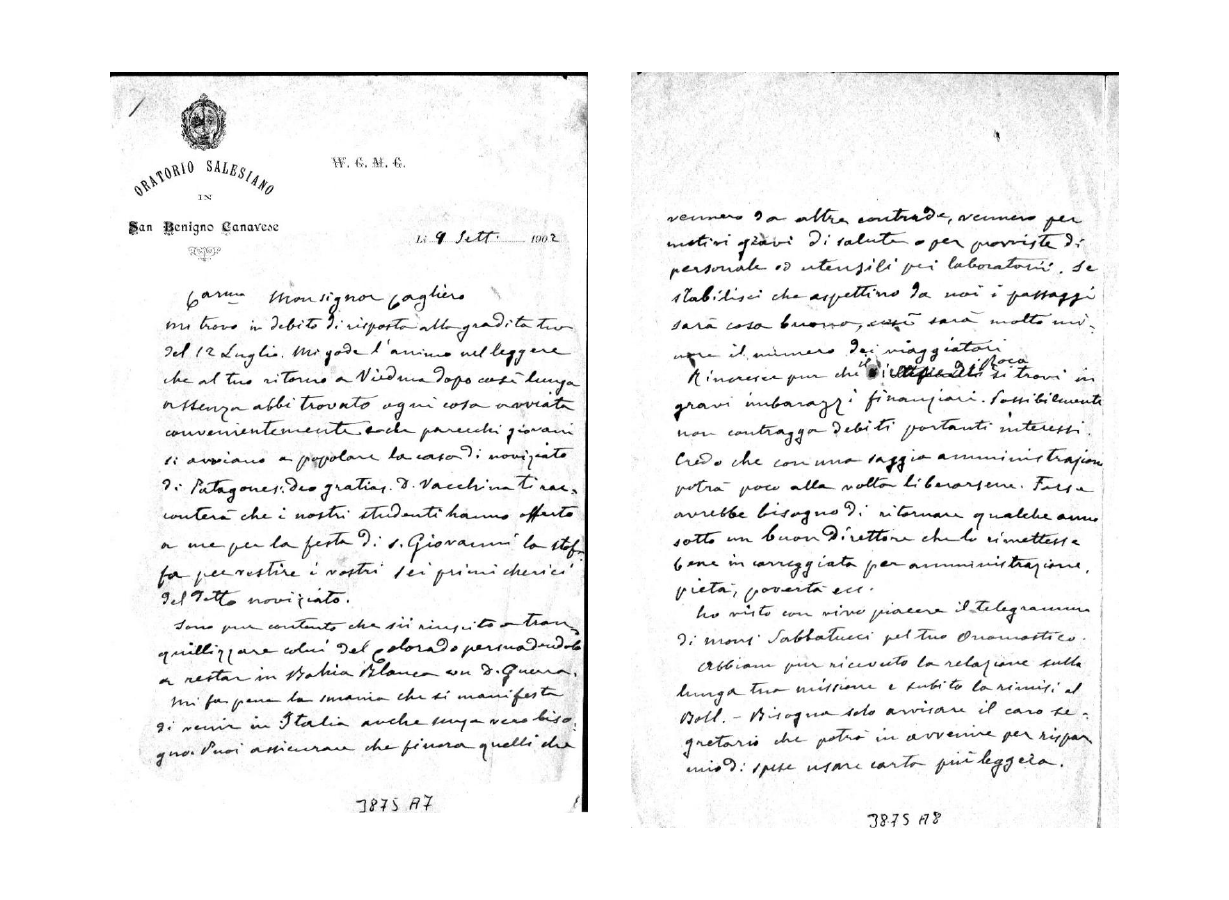 ORATORIO SALESIANO
IN
San Benigno Canavese
W. G. M. G.
Li 9 Sett. 1902
Carmo Monsignor Cagliero
mi trovo in debito di risposta alla gradita tua
del 12 Luglio. Mi gode l'animo nel leggere
che al tuo ritorno a Viedma dopo così lunga
assenza abbi trovato ogni cosa avviata
convenientemente e che parecchi giovani
si avviano a popolare la casa di noviziato
di Patagones. deo gratias. D. Vacchina ti rac-
conterà che i nostri studenti hanno offerto
a me per la festa di S. Giovanni la stof-
fa per vestire i vostri sei primi cherici
del detto noviziato.
Sono pur contento che sii riuscito a tran-
quillizzare colui del Colorado persuadendolo
a restar in Bahia Blanca con D. Guerra.
Mi fa pena la smania che si manifesta
di venir in Italia anche senza vero biso-
gno. Puoi assicurare che finora quelli che
3875 A7
vennero da altre contrade, vennero per
motivi gravi di salute o per provviste di
personale od utensili pei laboratorii. Se
stabilisci che aspettino da noi i passaggi
sarà cosa buona, sarà molto mi-
nore il numero dei viaggiatori
Rincresce pur che il di Roca si trovi in
gravi imbarazzi finanziari. Possibilmente
non contragga debiti portanti interessi.
Credo che con una saggia amministrazione
potrà poco alla volta liberarsene. Forse
avrebbe bisogno di ritornare qualche anno
sotto un buon direttore che lo rimettesse
bene in carreggiata per amministrazione,
pietà, povertà ecc.
Ho visto con vivo piacere il telegramma
di mons Sabbatucci pel tuo Onomastico.
Abbiam pur ricevuto la relazione sulla
lunga tua missione e subito la rimisi al
Boll. - Bisogna solo avvisare il caro se-
gretario che potrà in avvenire per rispar
mio di spese usare carta più leggera.
3875 A8